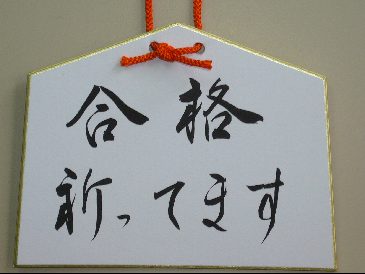 合格
祈ってます